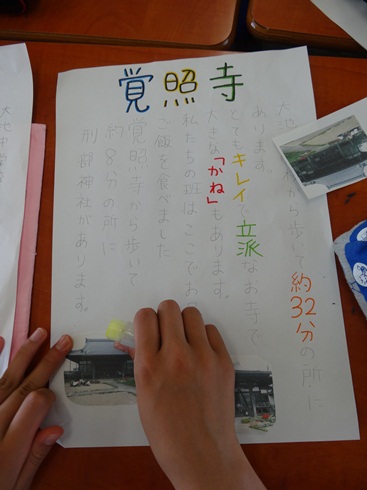 覚照寺
大地
から歩いて約32分の所に
あります。
とてもキレイで立派なお寺で
大きな「かね」もあります。
私たちの班はここでお
ご飯を食べました
覚照寺から歩いて
約8分の所に
刑部神社があります。
大地